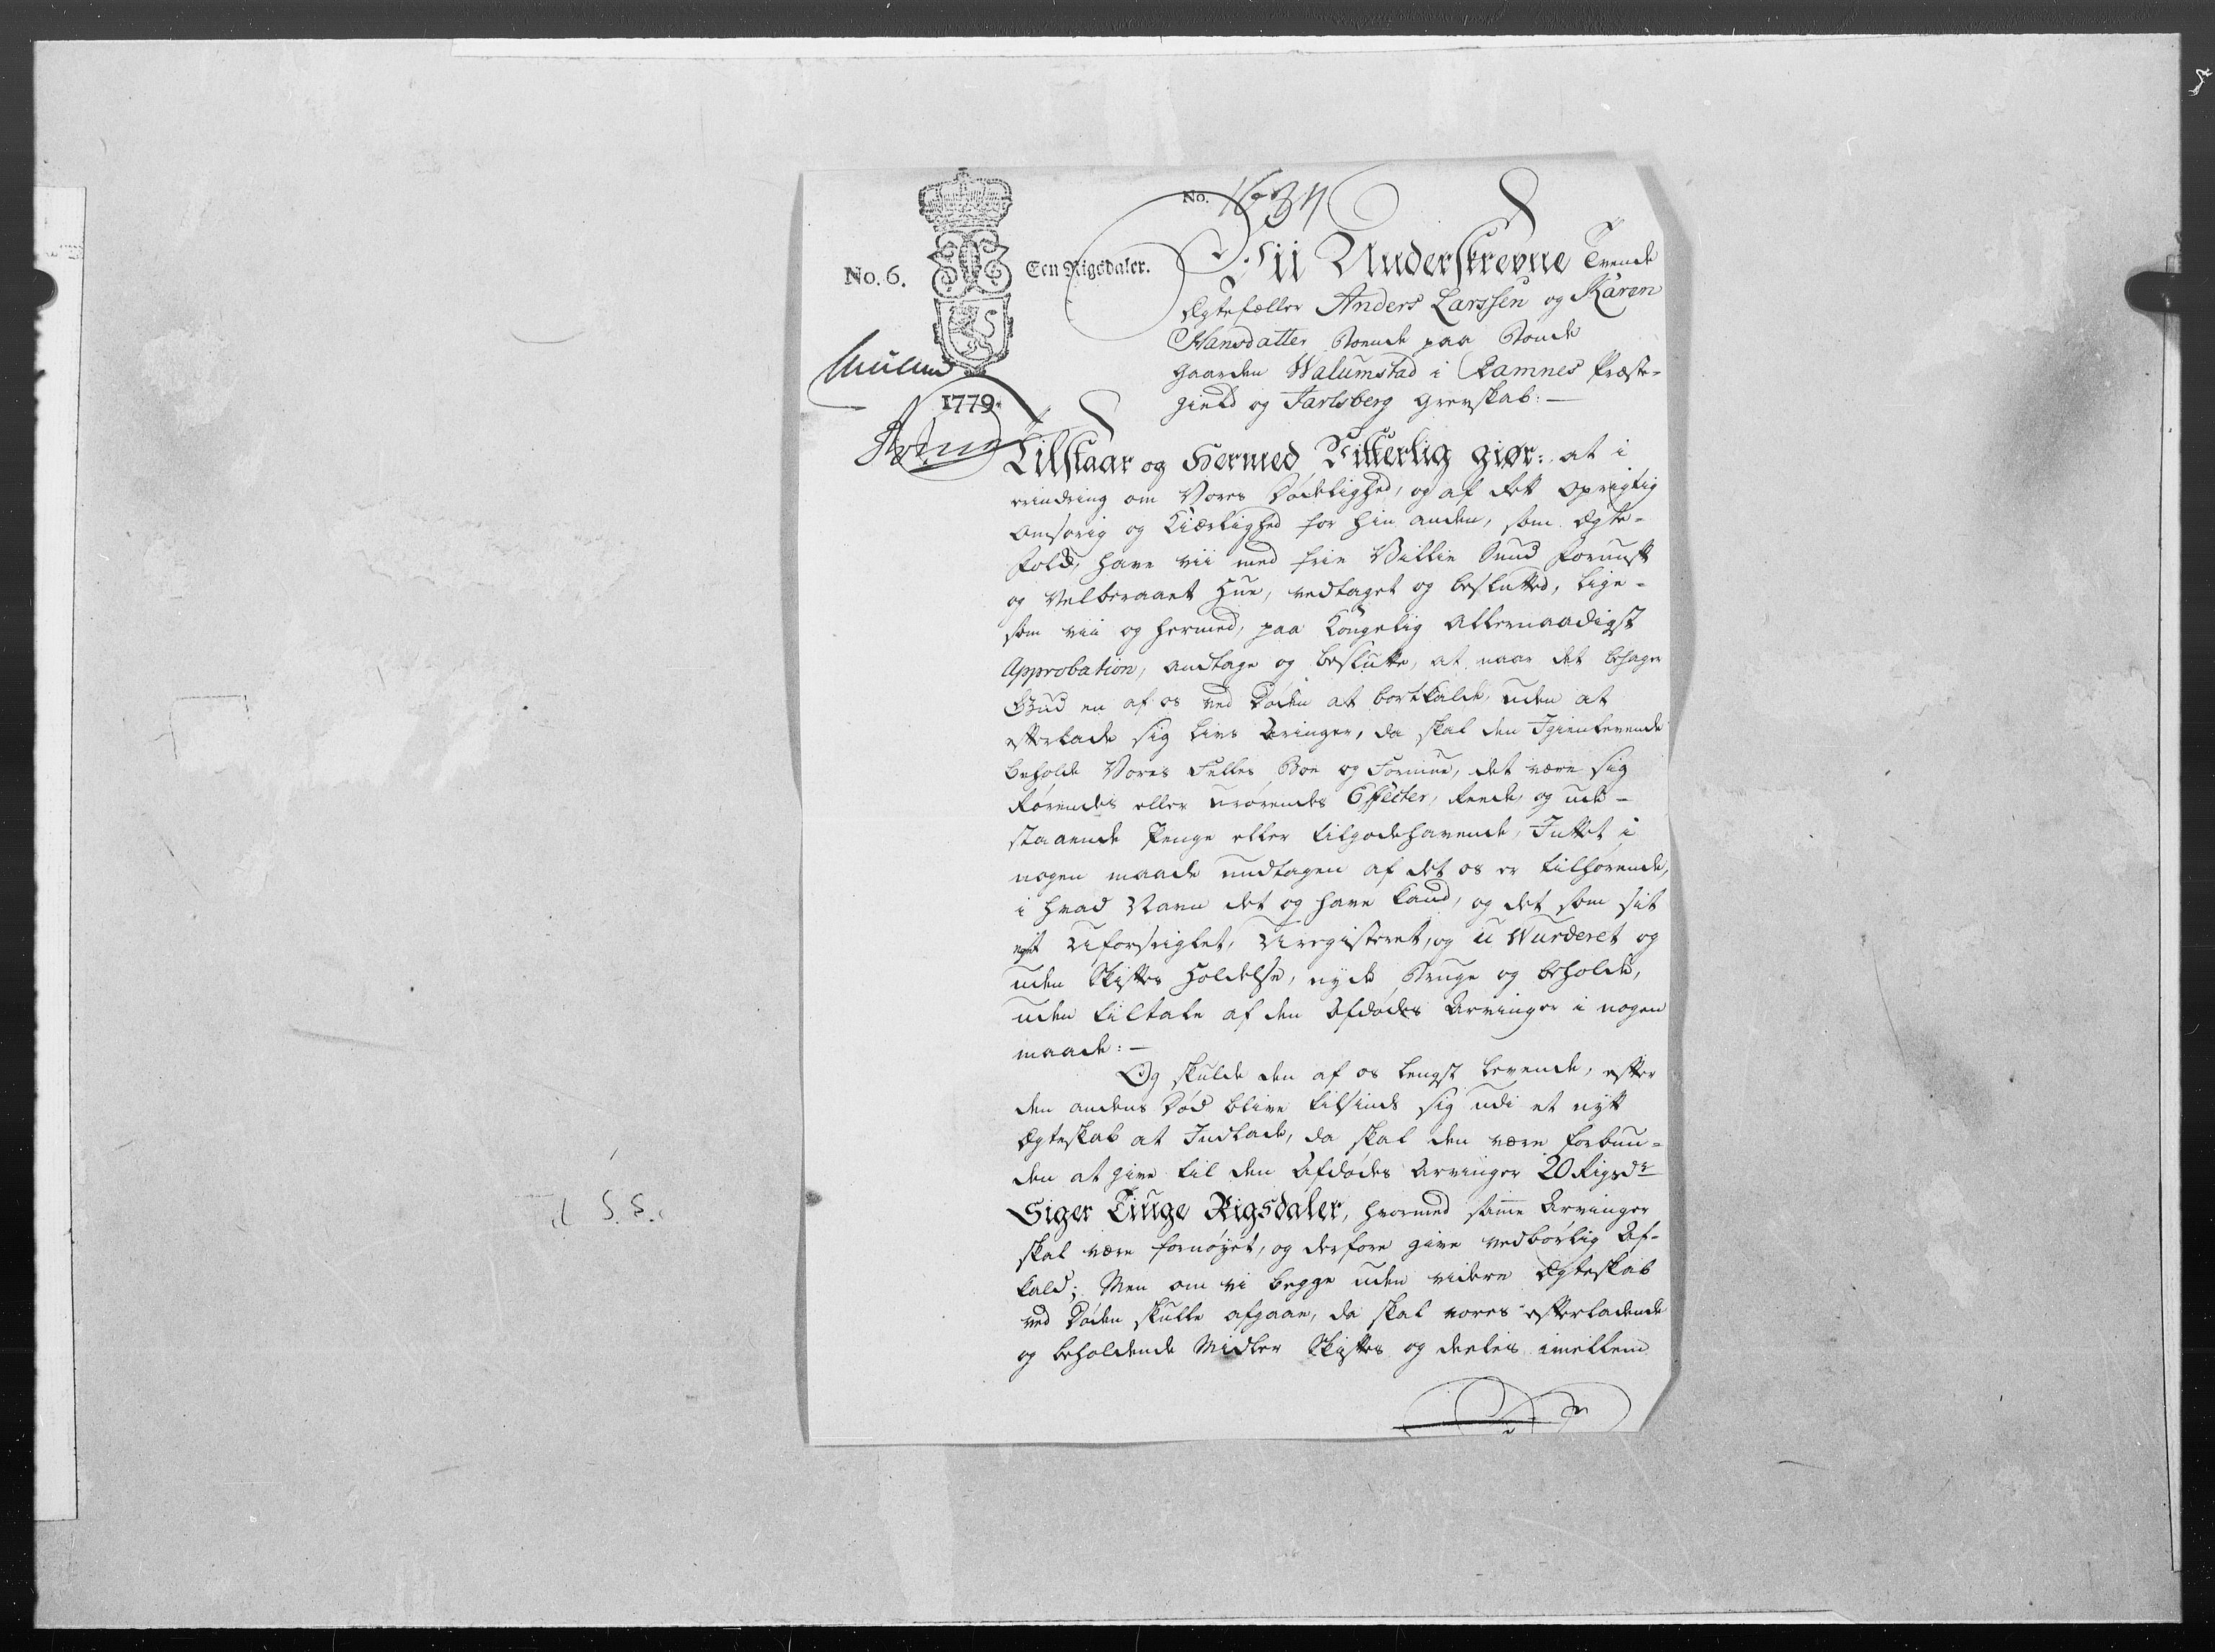 No. 1634
No. 6.
Een Rigsdaler.
1779.
Vii Underskrevne Tvende
Ægtefæller Anders Larssen og Karen
Hansdatter Boende paa Bonde
Gaarden Walumstad i Ramnes Præste-
gield og Jarlsberg Grevskab: —
Tilstaar og Hermed Vitterlig giør: at i
erindring om Vores Dødelighed, og af Rett Oprigtig
omsorig og Kiærlighed for hin anden, som Ægte-
folk, have vii med frie Villie Sund Fornuft
og Velberaaet Hue, vedtaget og beslutted, lige-
som vii og hermed, paa Kongelig Allernaadigst
Approbation, andtage og beslutte, at naar det behager
Gud en af os ved Døden att bortkalde, uden at
efterlade sig Livs Arvinger, da skal den Igienlevende
beholde Vores Felles Boe og Formue, det være sig
Rørendes eller Urørendes Effecter, Reede, og ude-
staaende Penge eller tilgodehavende, Intet i
nogen maade undtagen af det os er tilhørende,
i hvad Navn det og have kand, og det som sit
eget Uforseiglet, Uregistreret, og u Wurderet og
uden Skiftes Holdelse, nyde Bruge og beholde,
uden tiltale af den Afdødes Arvinger i nogen
maade: —
Og skulde den af os lengst levende, efter
den andens Død blive tilsinds sig udi et nytt
Ægteskab at Indlade, da skal den være forbun-
den at give til den Afdødes Arvinger 20 Rigsdr
Siger Tiuge Rigsdaler, hvormed samme Arvinger
skal være fornøyet, og derfore give vedbørlig Af-
kald; Men om vi begge uden videre Ægteskab
ved Døden skulle afgaae, da skal vores efterladende
og beholdende Midler Skiftes og deeles imellem